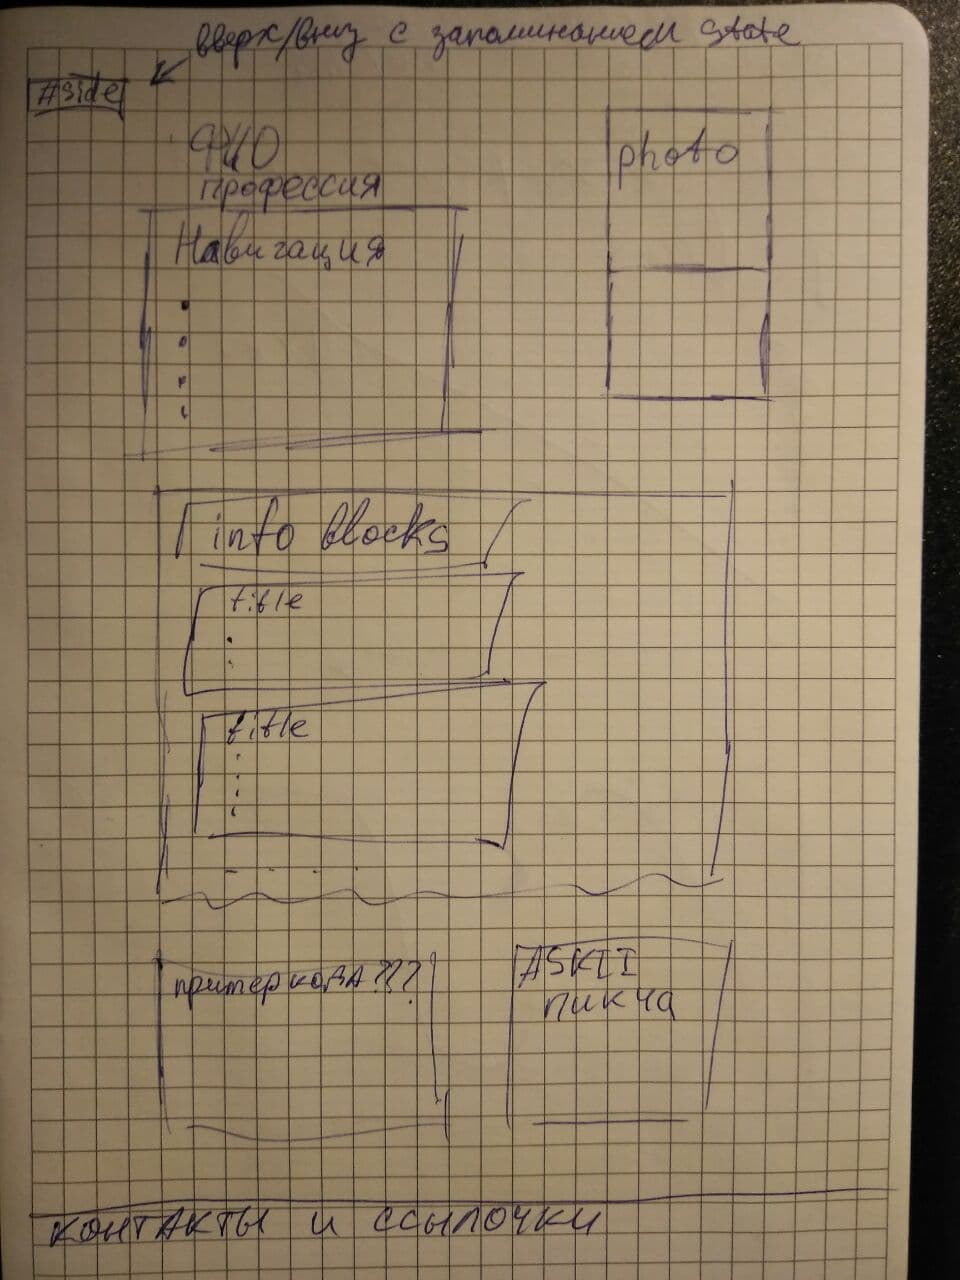 вверх/вниз с запоминанием state
#side
ФИО
профессия
photo
Навигация
info blocks
title
title
пример кода???
ASKII
пикча
контакты и ссылочки